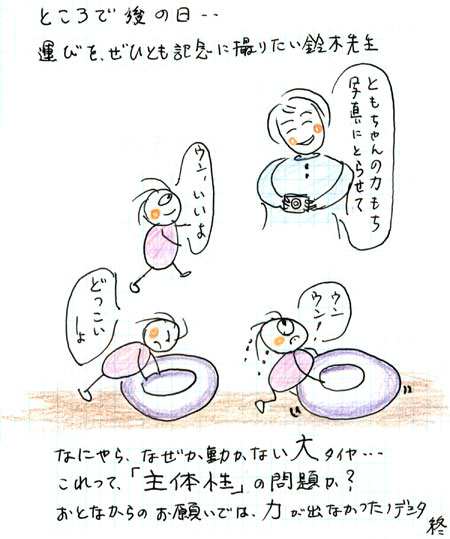 ところで後の日‥
運びを、ぜひとも記念に撮りたい鈴木先生
ともちゃんの力もち
写真にとらせて
ウン!いいよ
どっこい
しょ
ウン
ウン!
なにやら、なぜか動かない大タイヤ…
これって、「主体性」の問題か?
おとなからのお願いでは、力が出なかったノデシタ
終